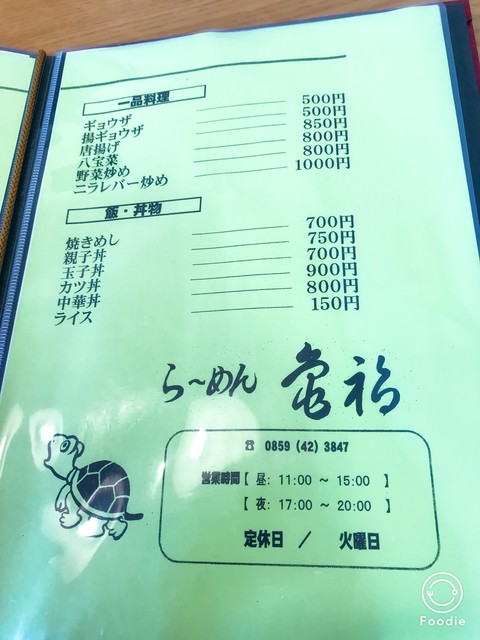 一品料理
ギョウザ 500円
揚ギョウザ 500円
唐揚げ 850円
八宝菜 800円
野菜炒め 800円
ニラレバー炒め 1000円
飯・丼物
焼きめし 700円
親子丼 750円
玉子丼 700円
カツ丼 900円
中華丼 800円
ライス 150円
ら～めん 亀福
☎ 0859 (42) 3847
営業時間【 昼: 11:00 ～ 15:00 】
【 夜: 17:00 ～ 20:00 】
定休日 ／ 火曜日
Foodie